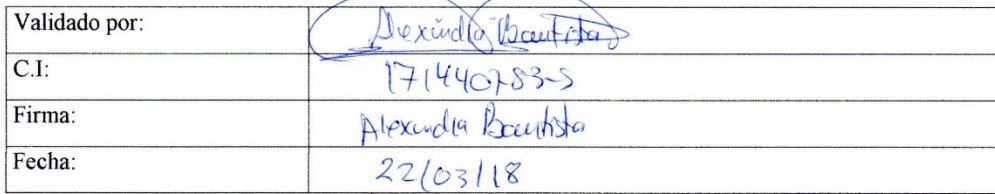 Validado por: Alexandra Bautista
C.I: 171440783-5
Firma: Alexandra Bautista
Fecha: 22/03/18